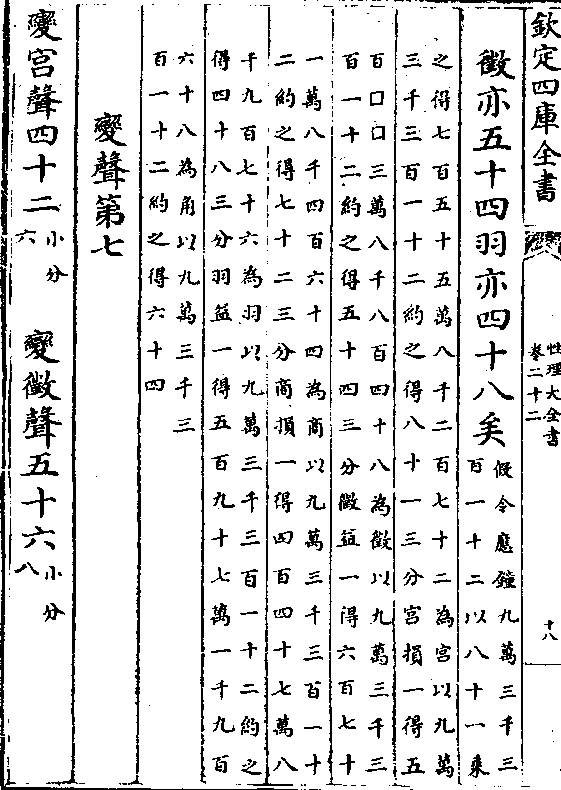 欽定四庫全書
性理大全書
卷二十二
十八
徵亦五十四羽亦四十八矣
假令應鐘九萬三千三
百一十二以八十一乘
之得七百五十五萬八千二百七十二為宮以九萬
三千三百一十二約之得八十一三分宮損一得五
百囗囗三萬八千八百四十八為徵以九萬三千三
百一十二約之得五十四三分徵益一得六百七十
一萬八千四百六十四為商以九萬三千三百一十
二約之得七十二三分商損一得四百四十七萬八
千九百七十六為羽以九萬三千三百一十二約之
得四十八三分羽益一得五百九十七萬一千九百
六十八為角以九萬三千三
百一十二約之得六十四
變聲第七
變宮聲四十二小分六 變徵聲五十六小分八